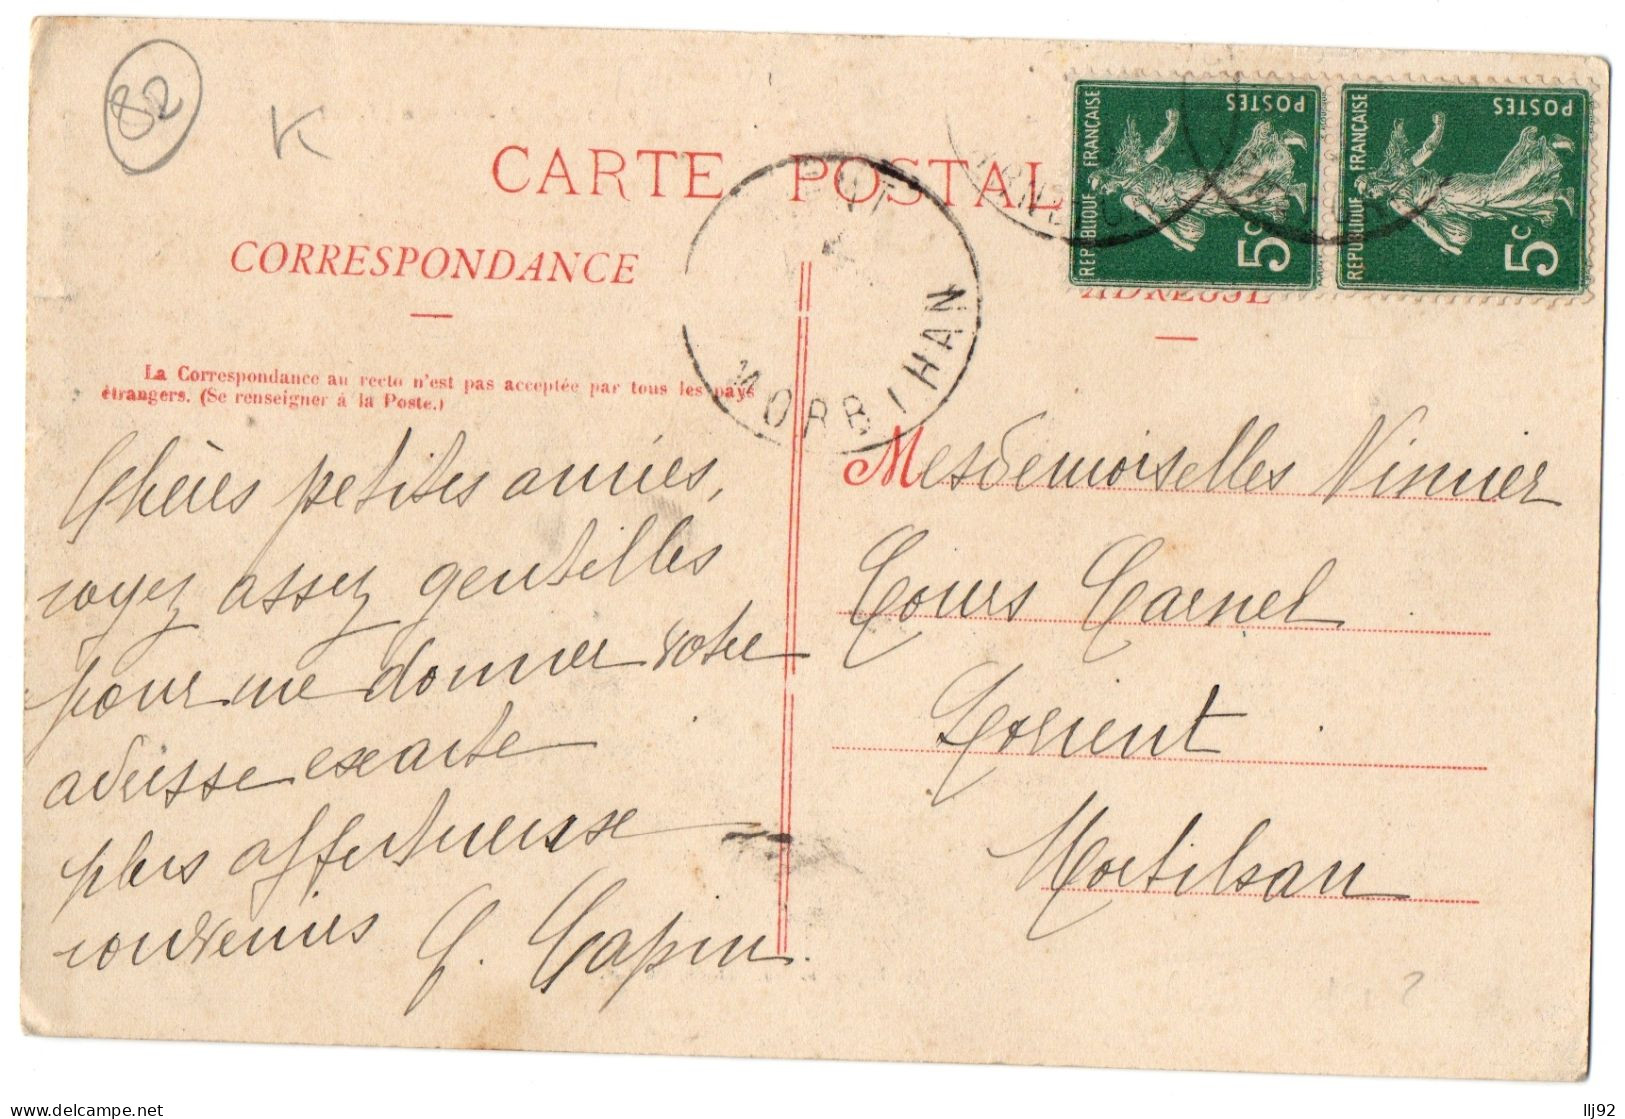 82
K
CARTE POSTAL
CORRESPONDANCE
La Correspondance au recto n'est pas acceptée par tous les pays
étrangers. (Se renseigner à la Poste.)
Chères petites amies,
soyez assez gentilles
pour me donner votre
adresse exacte
plus affectueuse
souvenirs G. Capin.
MORBIHAN
REPUBLIQUE FRANÇAISE
POSTES
5c
REPUBLIQUE FRANÇAISE
POSTES
5c
ADRESSE
Mesdemoiselles Vinnier
Cours Carnel
Lorient
Morbihan
llj92